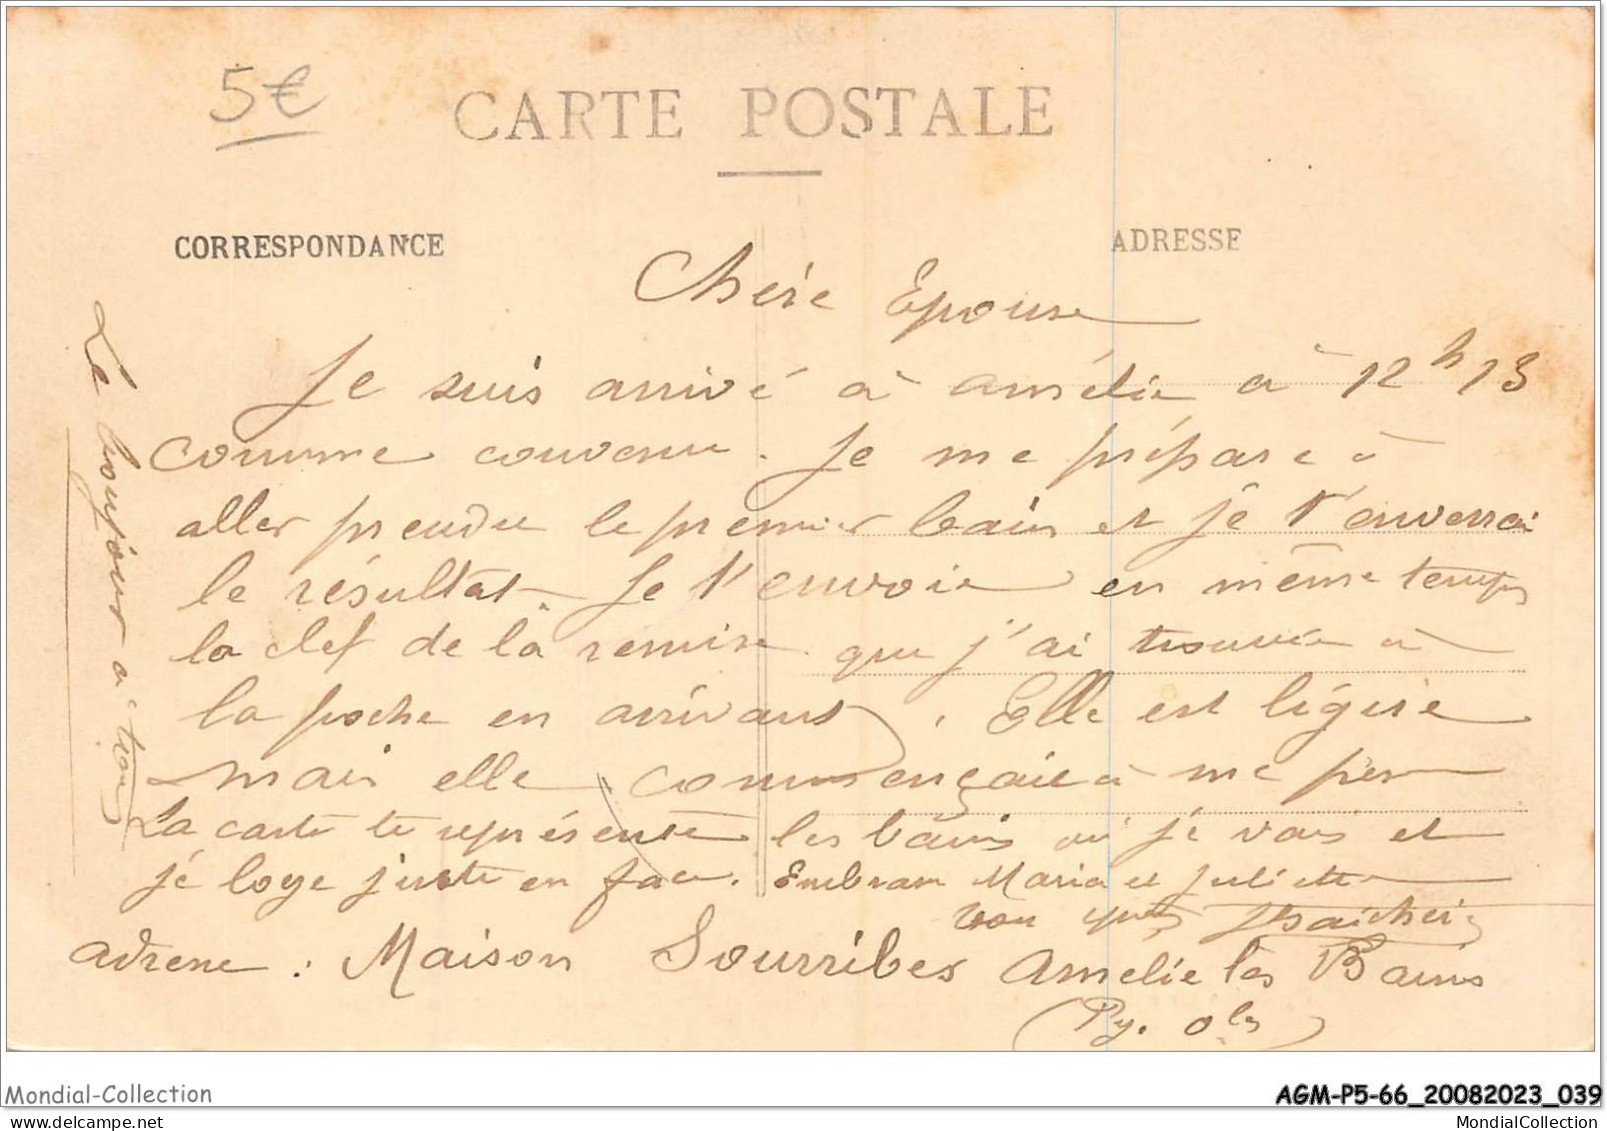 5€
CARTE POSTALE
CORRESPONDANCE
ADRESSE
Chère Epouse
Je suis arrivé à amélie à 12h13
comme convenu. Je me prépare à
aller prendre le premier bain et je t'enverrai
le résultat. Je t'envoie en même temps
la clef de la remise que j'ai trouvée à
la poche en arrivant. Elle est légère
mais elle commençait à me peser
La carte te représente les bains où je vais et
je loge juste en face. Embrasse Maria et Juliette
Ton époux
adresse : Maison Sourribes Amélie les Bains
(Py. Ole)
Le bonjour à tous
Mondial-Collection
AGM-P5-66_20082023_039
www.mondialcollection.com
MondialCollection.com